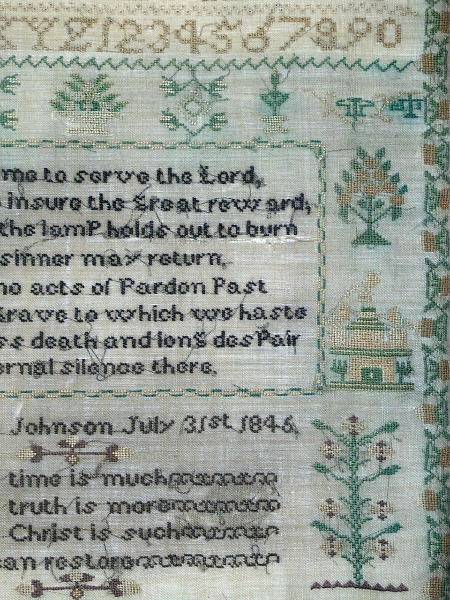 XYZ1234567890
me to serve the Lord,
insure the Great rew ard,
the lamP holds out to burn
sinner may return.
no acts of Pardon Past
Grave to which we haste
ss death and lonG des Pair
ernal silence there.
Johnson July 31st 1846,
time is much
truth is more
Christ is such
an restore